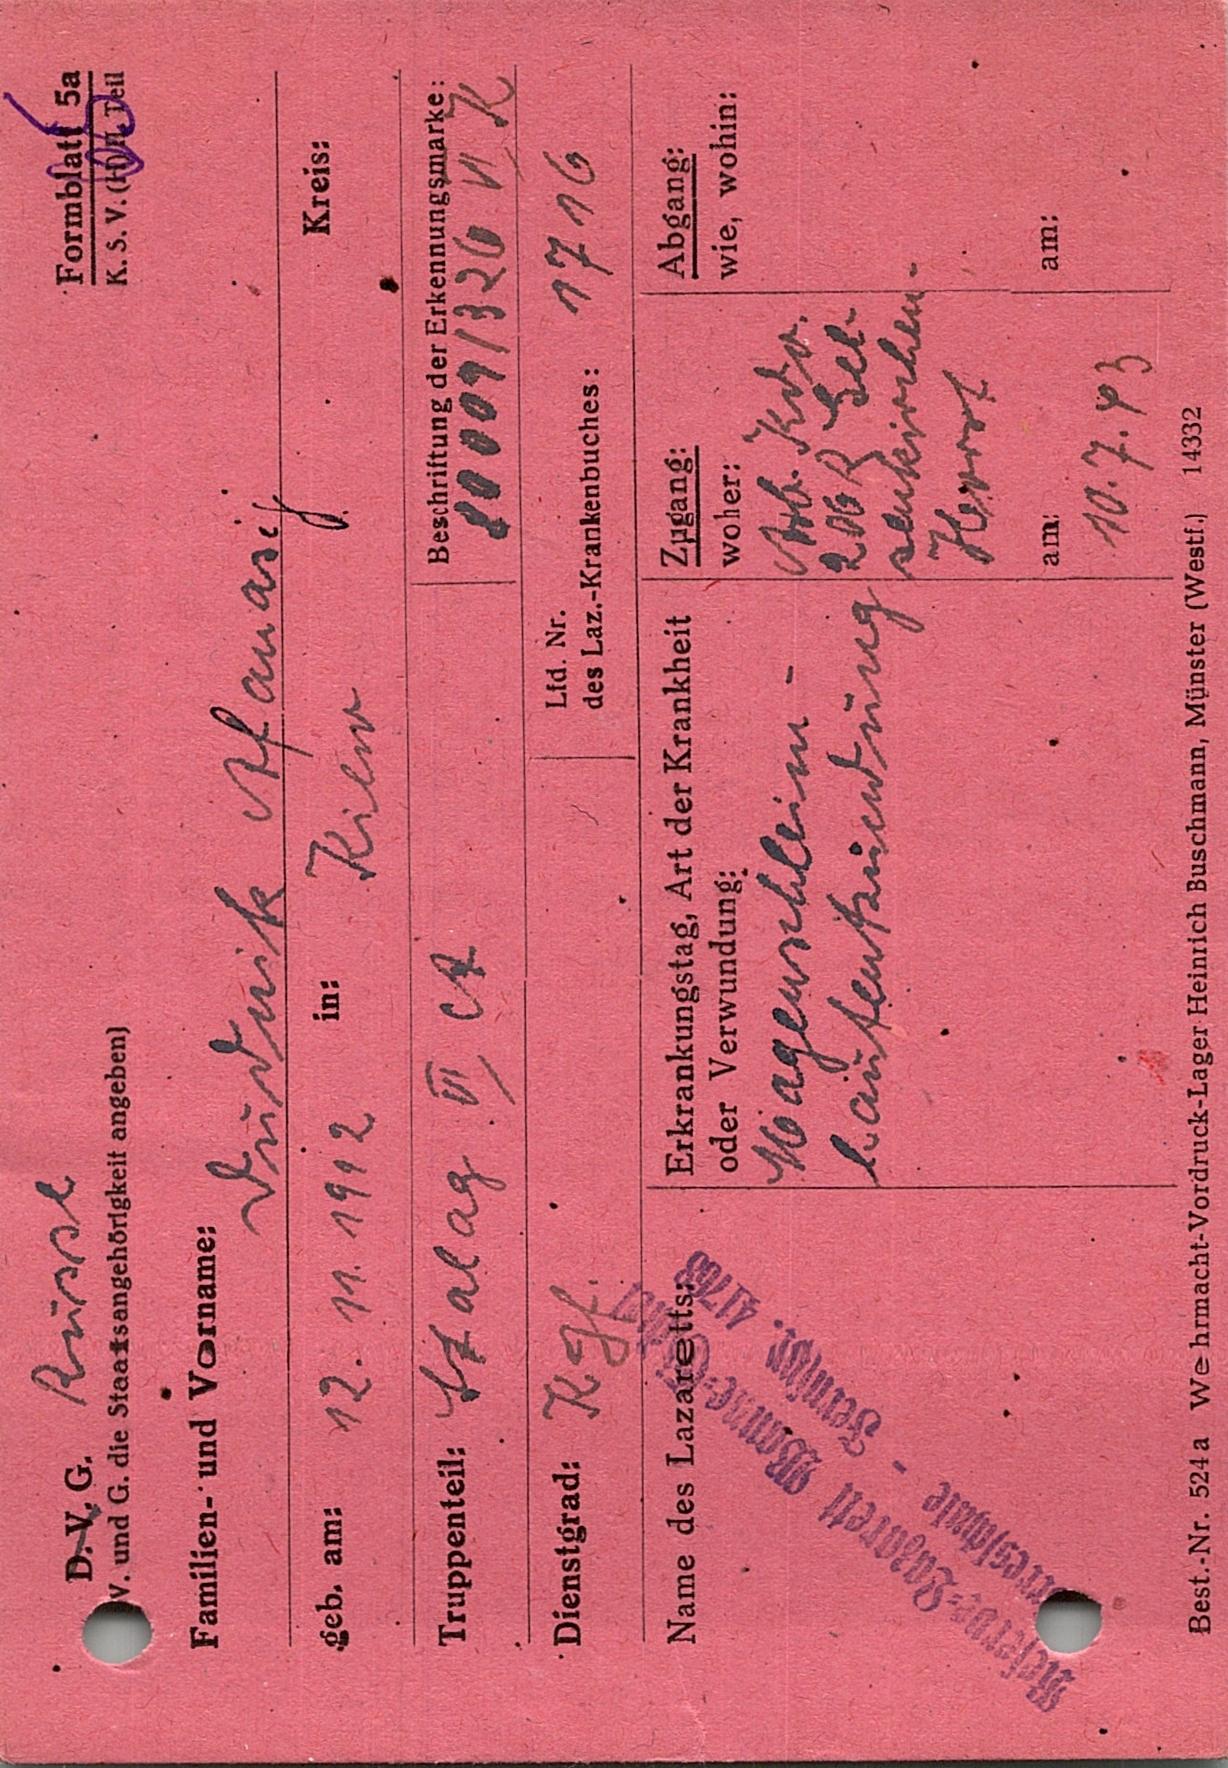 D. V. G. Russe
V. und G. die Staatsangehörigkeit angeben)
Formblatt 5a
K. S. V. Teil
Familien- und Vorname:
Dudnik Afanasij
geb. am: 12. 11. 1912 in: Kiew Kreis:
Truppenteil: Stalag VI A
Beschriftung der Erkennungsmarke:
326 VI K
Dienstgrad: Kgf.
Lfd. Nr.
des Laz.-Krankenbuches: 1716
Name des Lazaretts:
Reserve-Lazarett Wanne-Eickel
Fernspr. 41768
Erkrankungstag, Art der Krankheit
oder Verwundung:
Magenschleim-
hautentzündung
Zugang:
woher:
Arb. Kdo.
206 R Gel-
senkirchen-
Horst
am:
10. 7. 43
Abgang:
wie, wohin:
am:
Best.-Nr. 524a Wehrmacht-Vordruck-Lager Heinrich Buschmann, Münster (Westf.) 14332